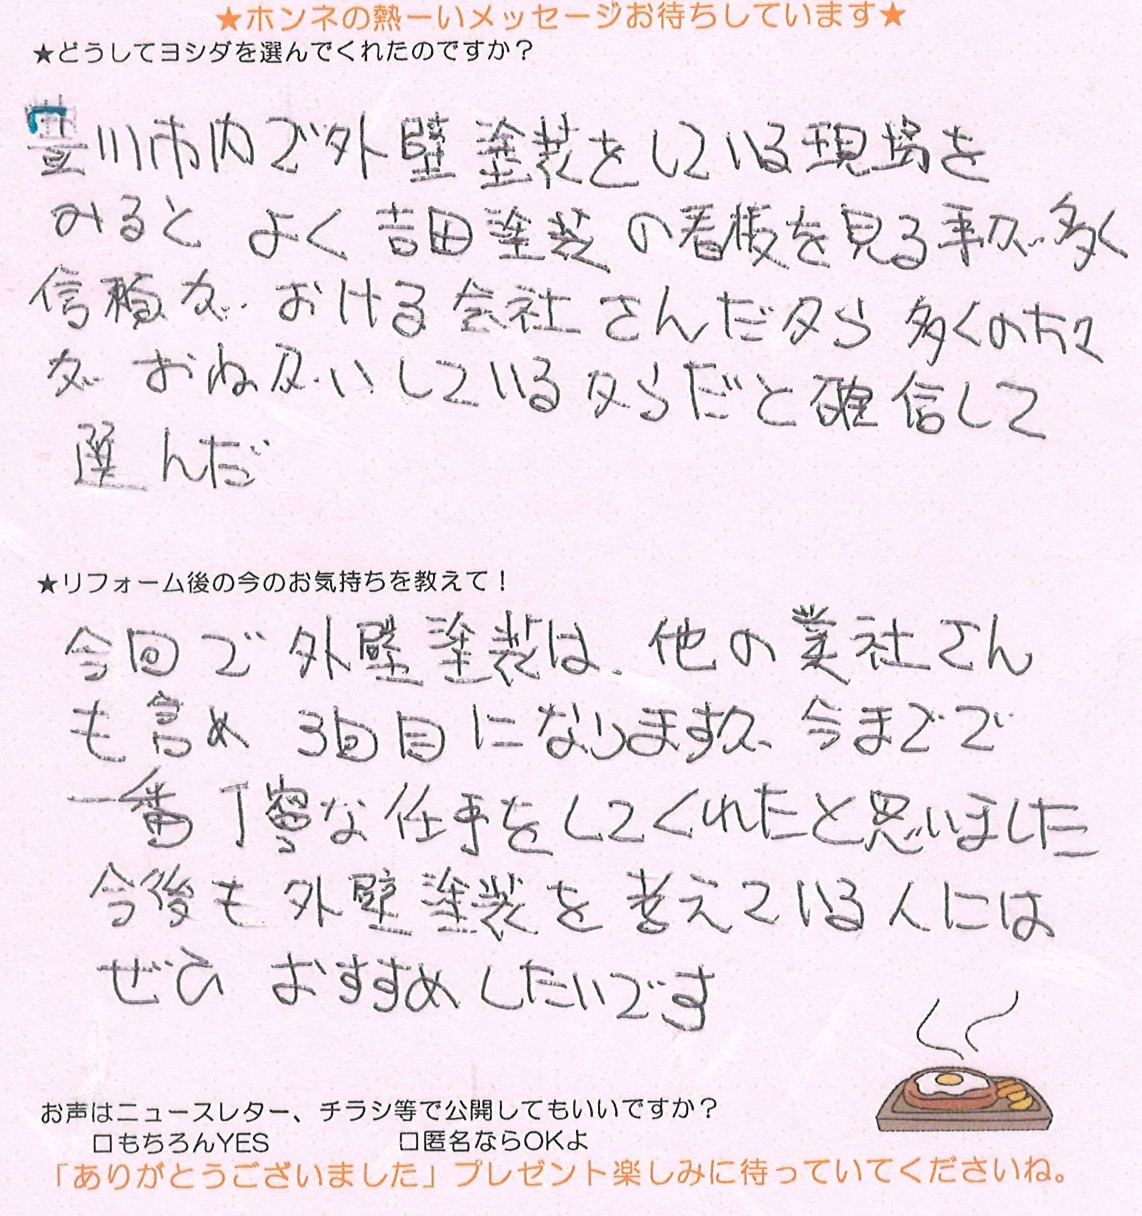 ★ホンネの熱ーいメッセージお待ちしています★
★どうしてヨシダを選んでくれたのですか？
豊川市内で外壁塗装をしている現場を
みると よく 吉田塗装 の看板を見る事が多く
信頼が おける 会社 さんだから 多くの方々
が おねがいしているからだと確信して
選んだ
★リフォーム後の今のお気持ちを教えて！
今回で 外壁塗装は、他の業社さん
も含め 3回目になりますが、今までで
一番 丁寧な仕事をしてくれたと思いました
今後も 外壁塗装を 考えている人には
ぜひ おすすめしたいです
お声はニュースレター、チラシ等で公開してもいいですか？
□もちろんYES □匿名ならOKよ
「ありがとうございました」プレゼント楽しみに待っていてくださいね。